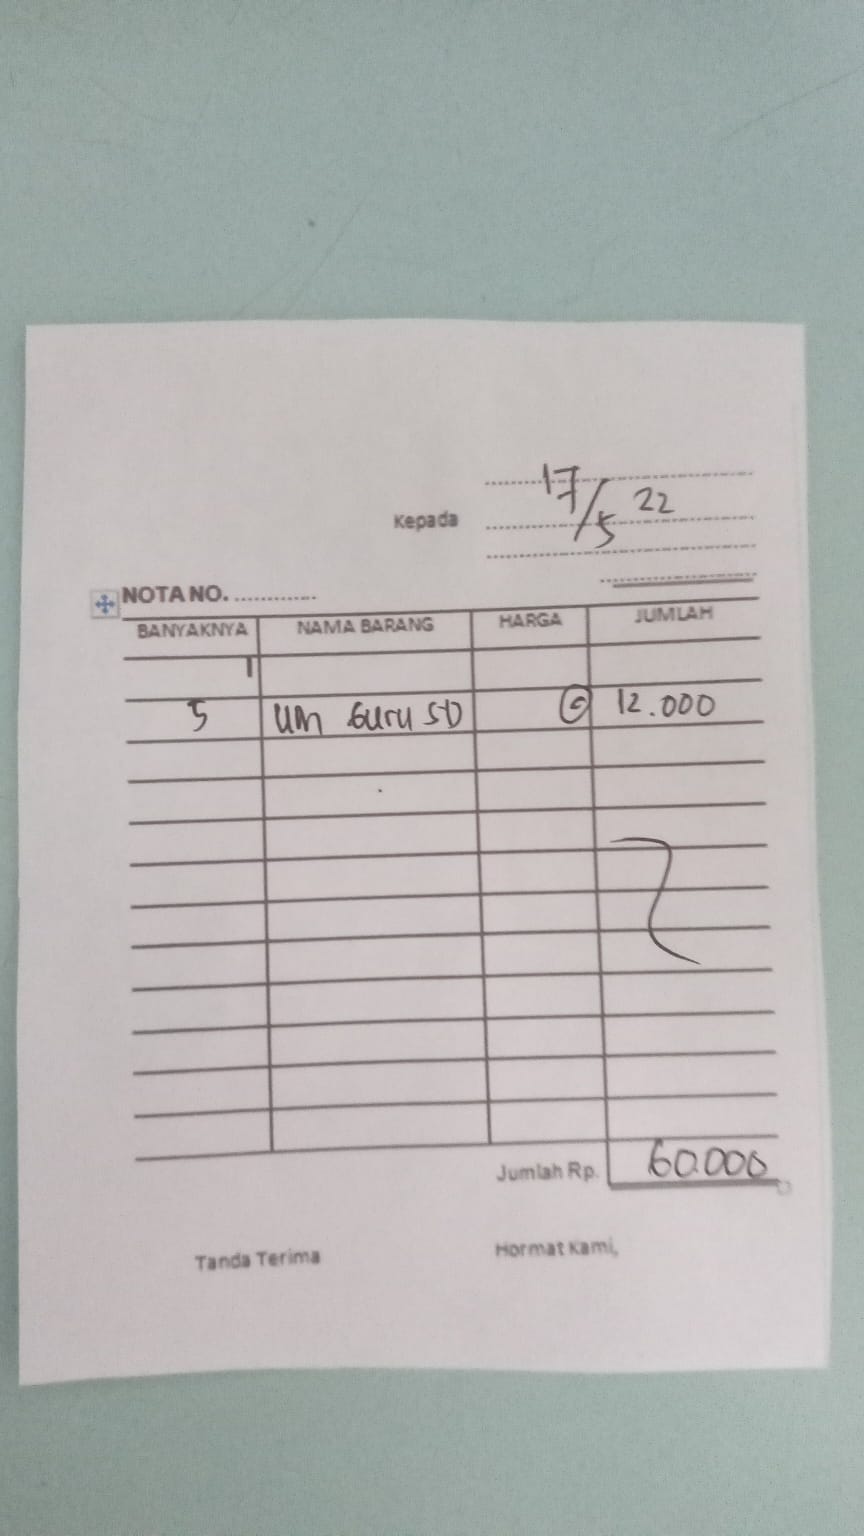 17/5 22
Kepada
NOTA NO. .............
BANYAKNYA NAMA BARANG HARGA JUMLAH
1
5 Um Guru SD @ 12.000
Jumlah Rp. 60.000
Tanda Terima Hormat Kami,